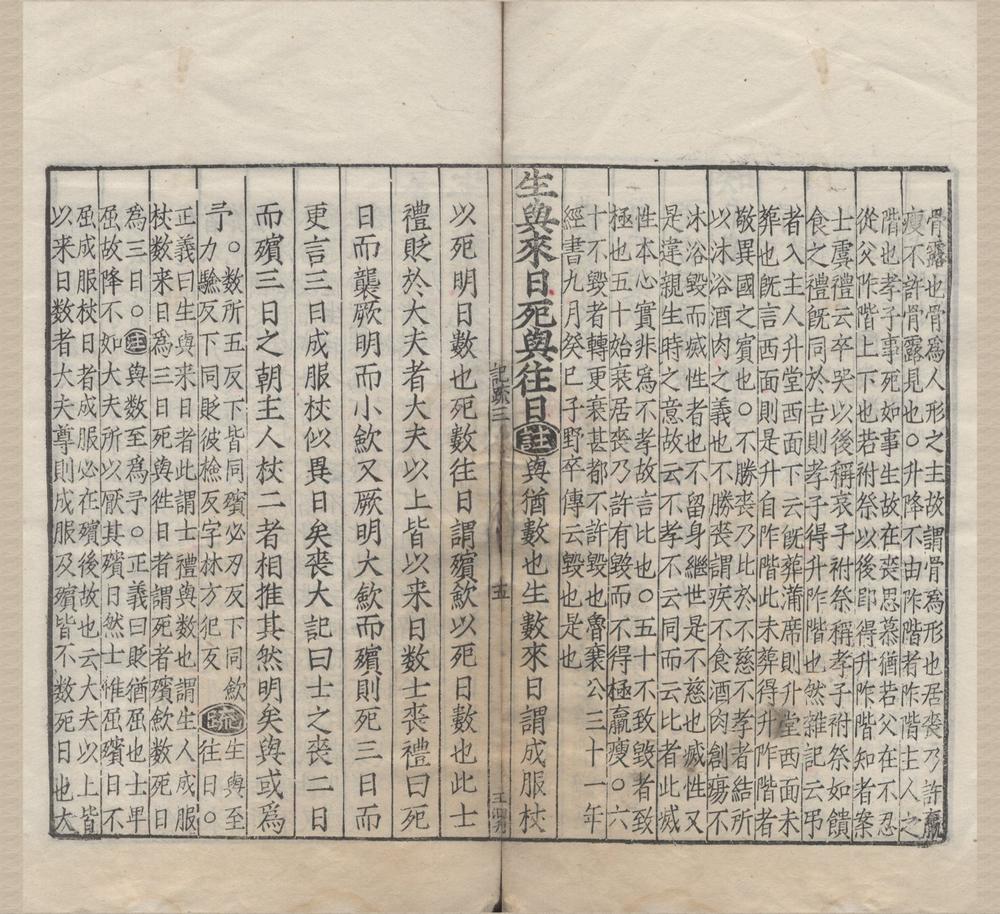 骨露也骨爲人形之主故謂骨爲形也居喪乃許羸
瘦不許骨露見也○升降不由阼階者阼階主人之
階也孝子事死如事生故在喪思慕猶若父在不忍
從父阼階上下也若祔祭以後卽得升阼階知者案
士虞禮云卒哭以後稱哀子祔祭稱孝子祔祭如饋
食之禮旣同於吉則孝子得升阼階也然雜記云弔
者入主人升堂西面下云旣葬蒲席則升堂西面未
葬也旣言西面則是升自阼階此未葬得升阼階者
敬異國之賓也○不勝喪乃比於不慈不孝者結所
以沐浴酒肉之義也不勝喪謂疾不食酒肉創瘍不
沐浴毁而滅性者也不留身繼世是不慈也滅性又
是違親生時之意故云不孝不云同而云比者此滅
性本心實非爲不孝故言比也○五十不致毁者致
極也五十始衰居喪乃許有毁而不得極羸瘦○六
十不毁者轉更衰甚都不許毁也魯襄公三十一年
經書九月癸巳子野卒傳云毁也是也
生與來日死與往日註與猶數也生數來日謂成服杖
記疏三 五
以死明日數也死數往日謂殯歛以死日數也此士
禮貶於大夫者大夫以上皆以来日数士喪禮曰死
日而襲厥明而小歛又厥明大歛而殯則死三日而
更言三日成服杖似異日矣喪大記曰士之喪二日
而殯三日之朝主人杖二者相推其然明矣與或爲
予○数所五反下皆同殯必刃反下同歛
力驗反下同貶彼檢反字林方犯反疏生與至往日○
正義曰生與来日者此謂士禮與数也謂生人成服
杖数来日爲三日死與徃日者謂死者殯歛数死日
爲三日○注與数至爲予○正義曰貶猶屈也士卑
屈故降不如大夫所以厭其殯日然士惟屈殯日不
屈成服杖日者成服必在殯後故也云大夫以上皆
以来日数者大夫尊則成服及殯皆不数死日也大